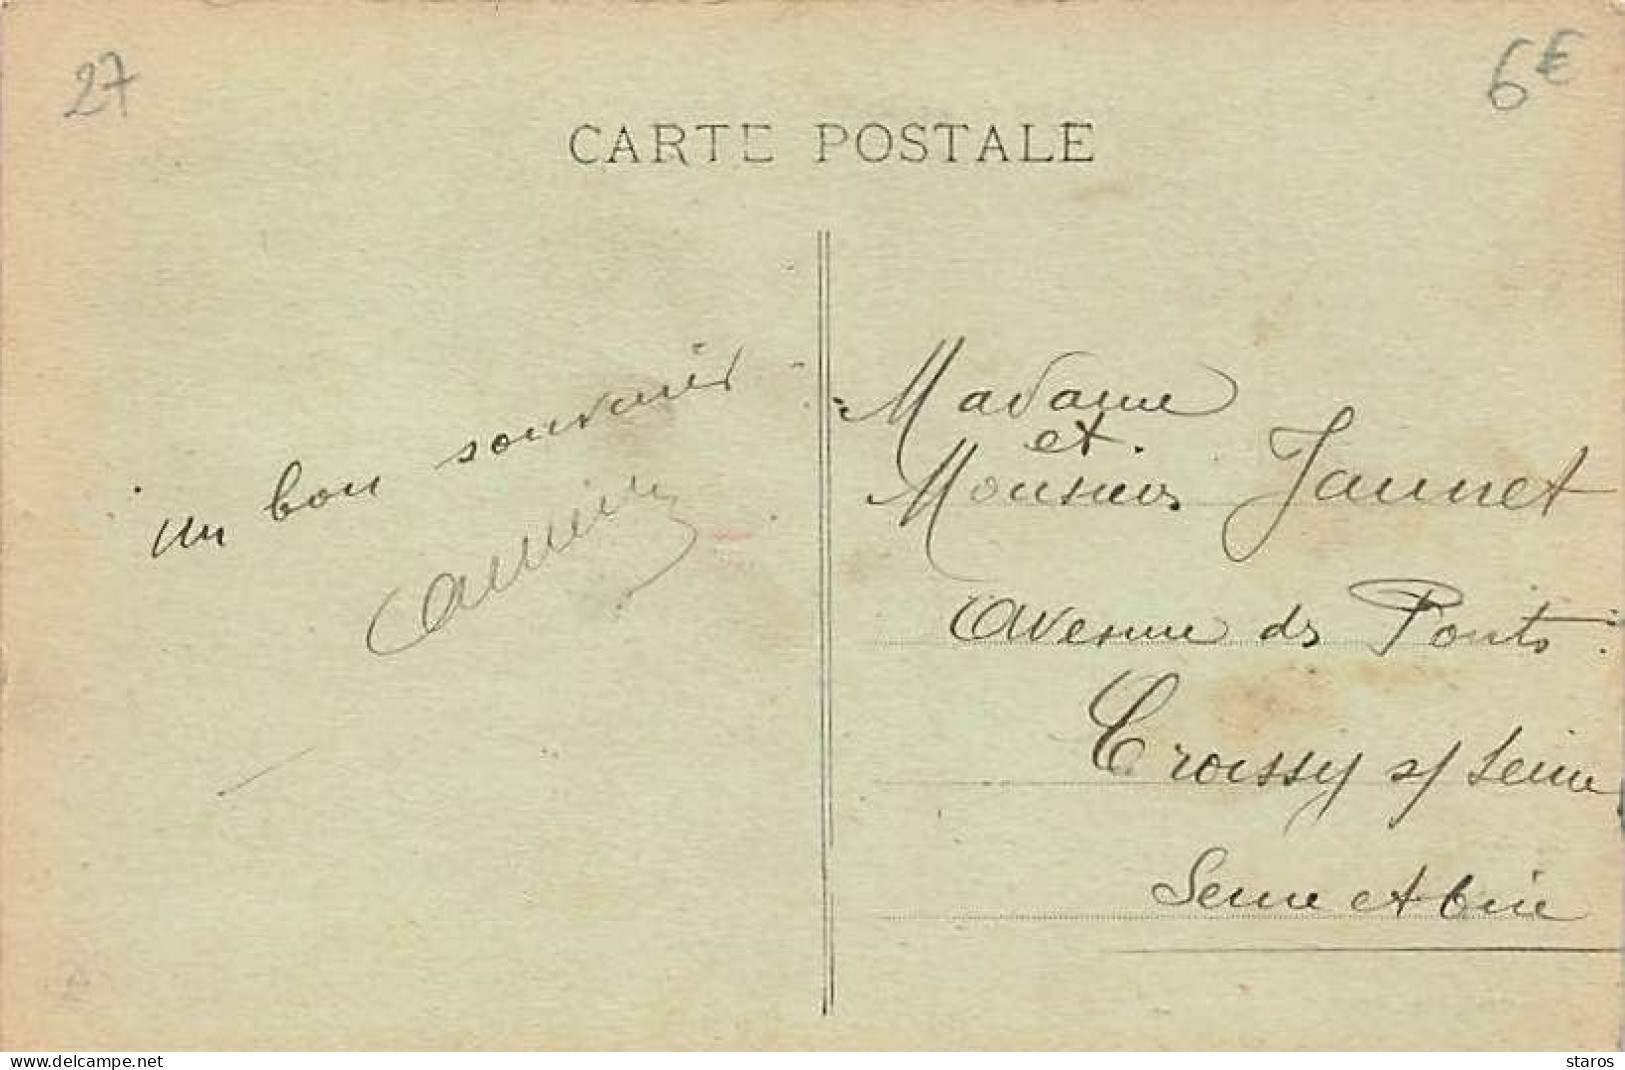 27
6€
CARTE POSTALE
un bon souvenir
Madame
et
Monsieur Jaunet
Avenue des Ponts
Croissy s/ Seine
Seine et Oise
www.delcampe.net
staros